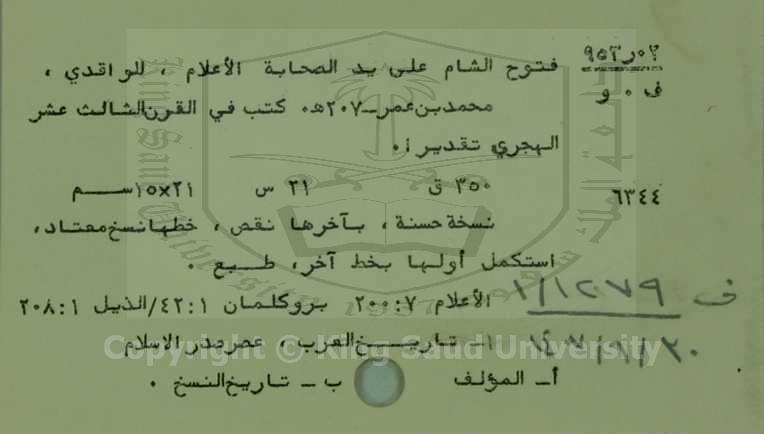 ٩٥٣ر٠٢ فتوح الشام على يد الصحابة الأعلام ، للواقدي ،
ف ٠ و محمد بن عمر ــ ٢٠٧هـ٠ كتب في القرن الثالث عشر
الهجري تقديرا ٠
٦٣٤٤ ٣٥٠ ق ٢١ س ٢١×١٥ ســم
نسخة حسنة ، بآخرها نقص ، خطها نسخ معتاد ،
استكمل أولها بخط آخر ، طـبع ٠
الأعلام ٧:٢٠٠ بروكلمان ١:٤٢/الذيل ١:٢٠٨
١ــ تاريــخ العرب ، عصر صدر الاسلام
أــ المؤلف ب ــ تاريخ النسخ ٠
ف
Copyright © King Saud University